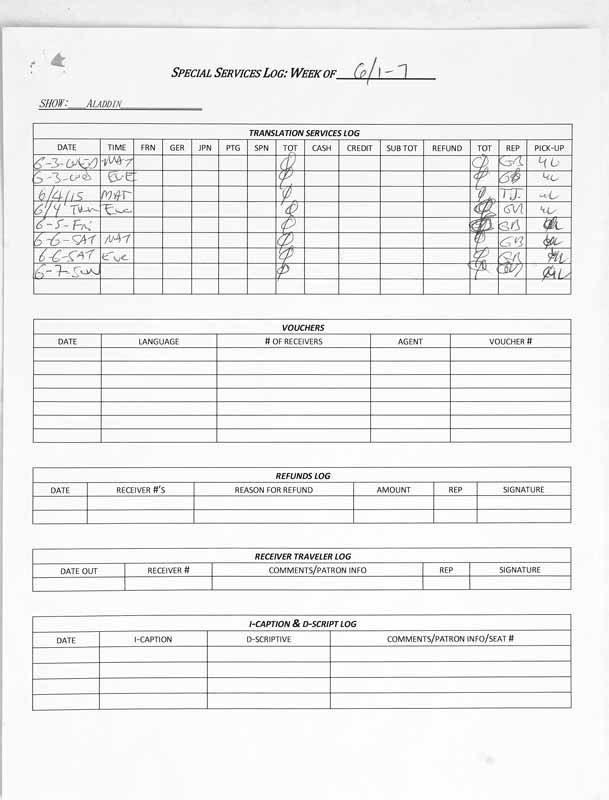 SPECIAL SERVICES LOG: WEEK OF 6/1-7
SHOW: ALADDIN
TRANSLATION SERVICES LOG
DATE TIME FRN GER JPN PTG SPN TOT CASH CREDIT SUB TOT REFUND TOT REP PICK-UP
6-3-WED MAT Ø Ø GB 4U
6-3-WED EVE Ø Ø GB 4U
6/4/15 MAT Ø Ø T.J. 4U
6/4 Thu Eve Ø Ø GB 4U
6-5-Fri Ø Ø GB 4U
6-6-SAT MAT Ø Ø GB 4U
6-6-SAT Eve Ø Ø GB 4U
6-7-SUN Ø Ø GB 4U
VOUCHERS
DATE LANGUAGE # OF RECEIVERS AGENT VOUCHER #
REFUNDS LOG
DATE RECEIVER #'S REASON FOR REFUND AMOUNT REP SIGNATURE
RECEIVER TRAVELER LOG
DATE OUT RECEIVER # COMMENTS/PATRON INFO REP SIGNATURE
I-CAPTION & D-SCRIPT LOG
DATE I-CAPTION D-SCRIPTIVE COMMENTS/PATRON INFO/SEAT #